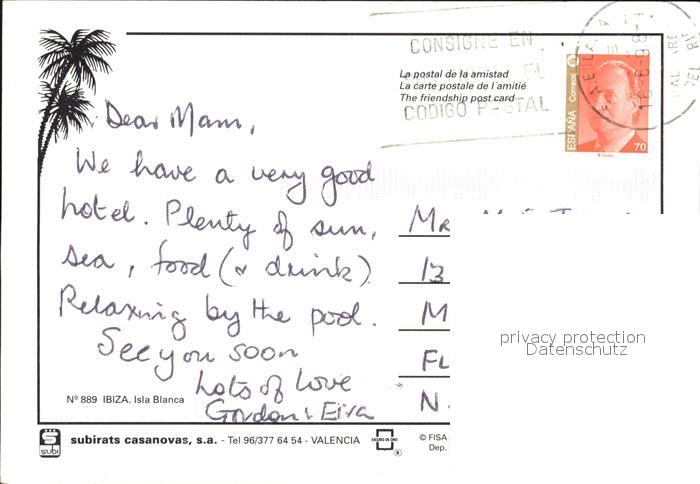 CONSIGNE EN
EL
CODIGO POSTAL
La postal de la amistad
La carte postale de l'amitié
The friendship post card
ESPAÑA Correos
70
Dear Mam,
We have a very good
hotel. Plenty of sun,
sea, food (& drink)
Relaxing by the pool.
See you soon
Lots of love
Gordon &
13
M
FL
N.
privacy protection
Datenschutz
Nº 889 IBIZA. Isla Blanca
SUBI
subirats casanovas, s.a. - Tel 96/377 64 54 - VALENCIA
ESCUDO DE ORO
®
© FISA
Dep.